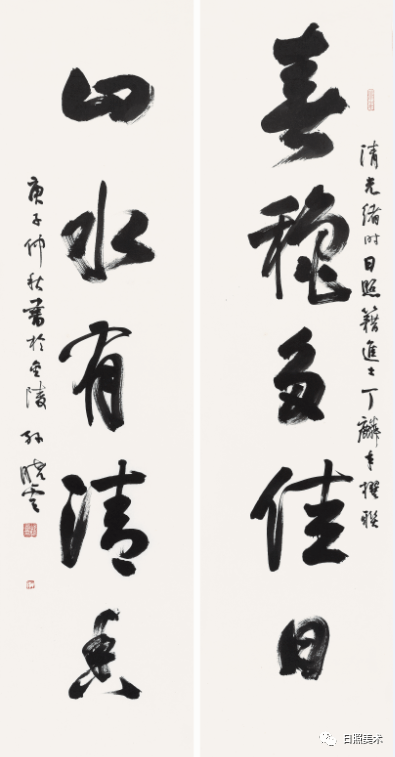 清光緒时日照籍進士丁麟年撰聯
春穐多佳日
山水有清音
庚子仲秋書於金陵 孫曉雲
日照美术